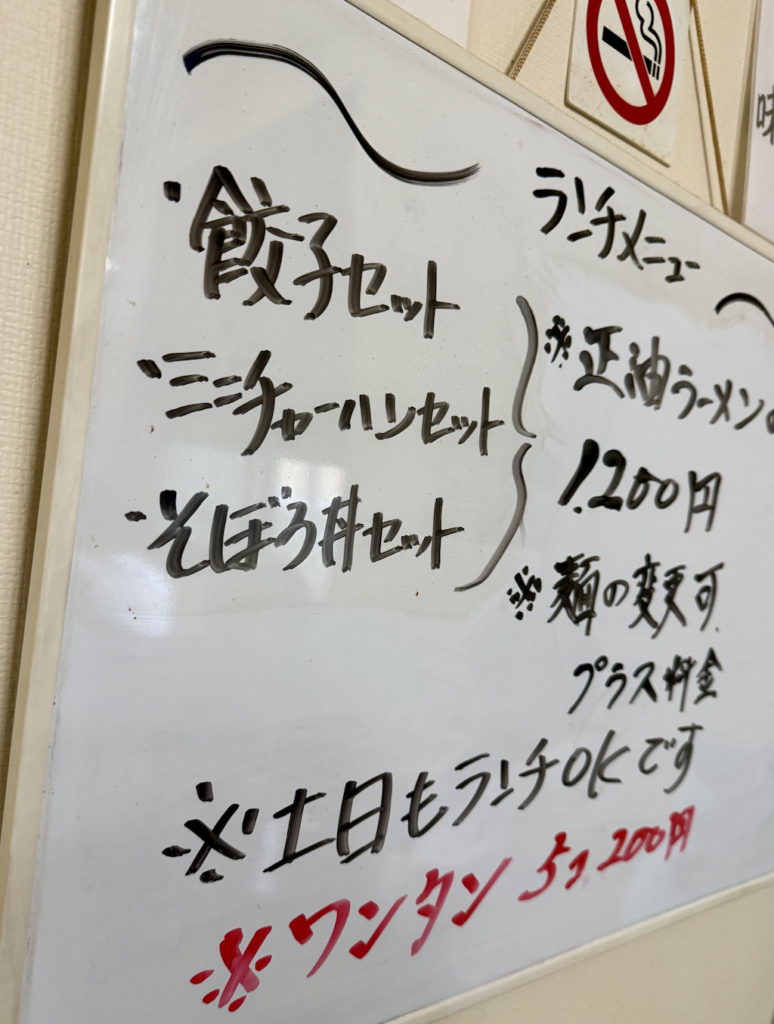 ランチメニュー
・餃子セット
・ミニチャーハンセット
・そぼろ丼セット
※正油ラーメン
1.200円
※麺の変更可
プラス料金
※土日もランチOKです
※ワンタン 5コ 200円
味